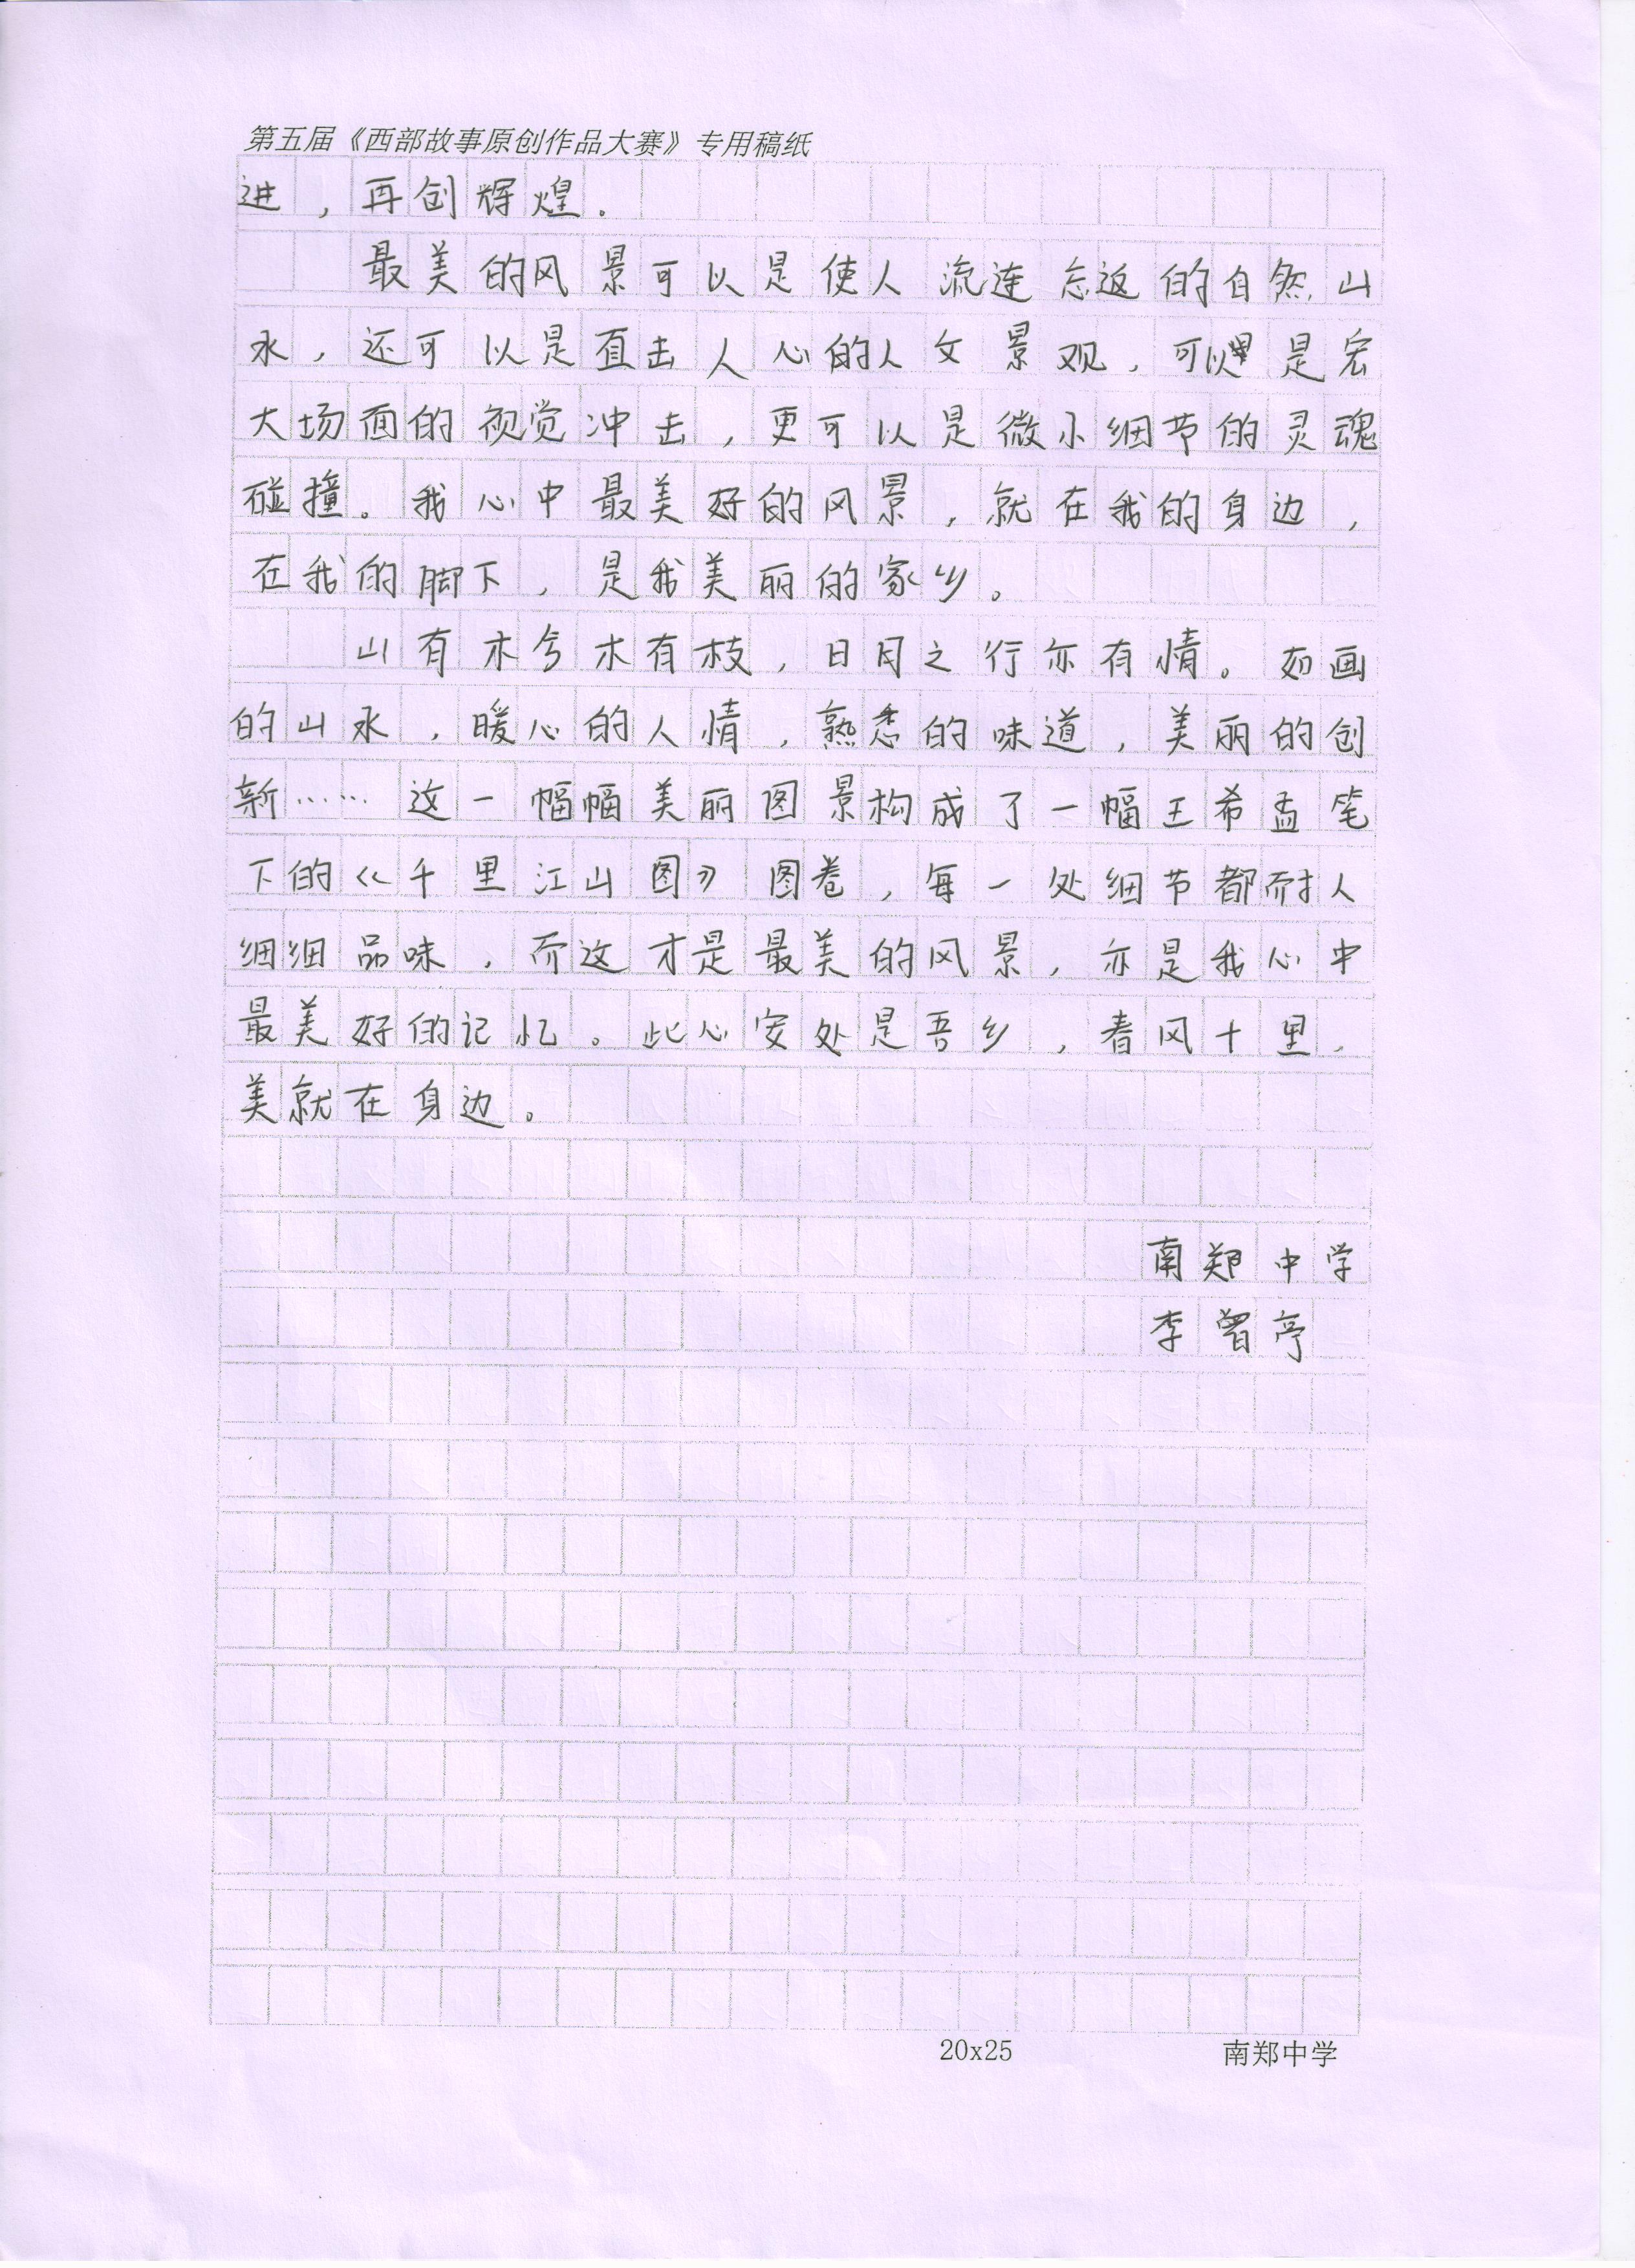 第五届《西部故事原创作品大赛》专用稿纸
进，再创辉煌.
最美的风景可以是使人流连忘返的自然山
水，还可以是直击人心的人文景观，可以是宏
大场面的视觉冲击，更可以是微小细节的灵魂
碰撞。我心中最美好的风景，就在我的身边，
在我的脚下，是我美丽的家乡。
山有木兮木有枝，日月之行亦有情。如画
的山水，暖心的人情，熟悉的味道，美丽的创
新……这一幅幅美丽图景构成了一幅王希孟笔
下的《千里江山图》图卷，每一处细节都耐人
细细品味，而这才是最美的风景，亦是我心中
最美好的记忆。此心安处是吾乡，春风十里，
美就在身边。
南郑中学
李曾亭
20x25 南郑中学